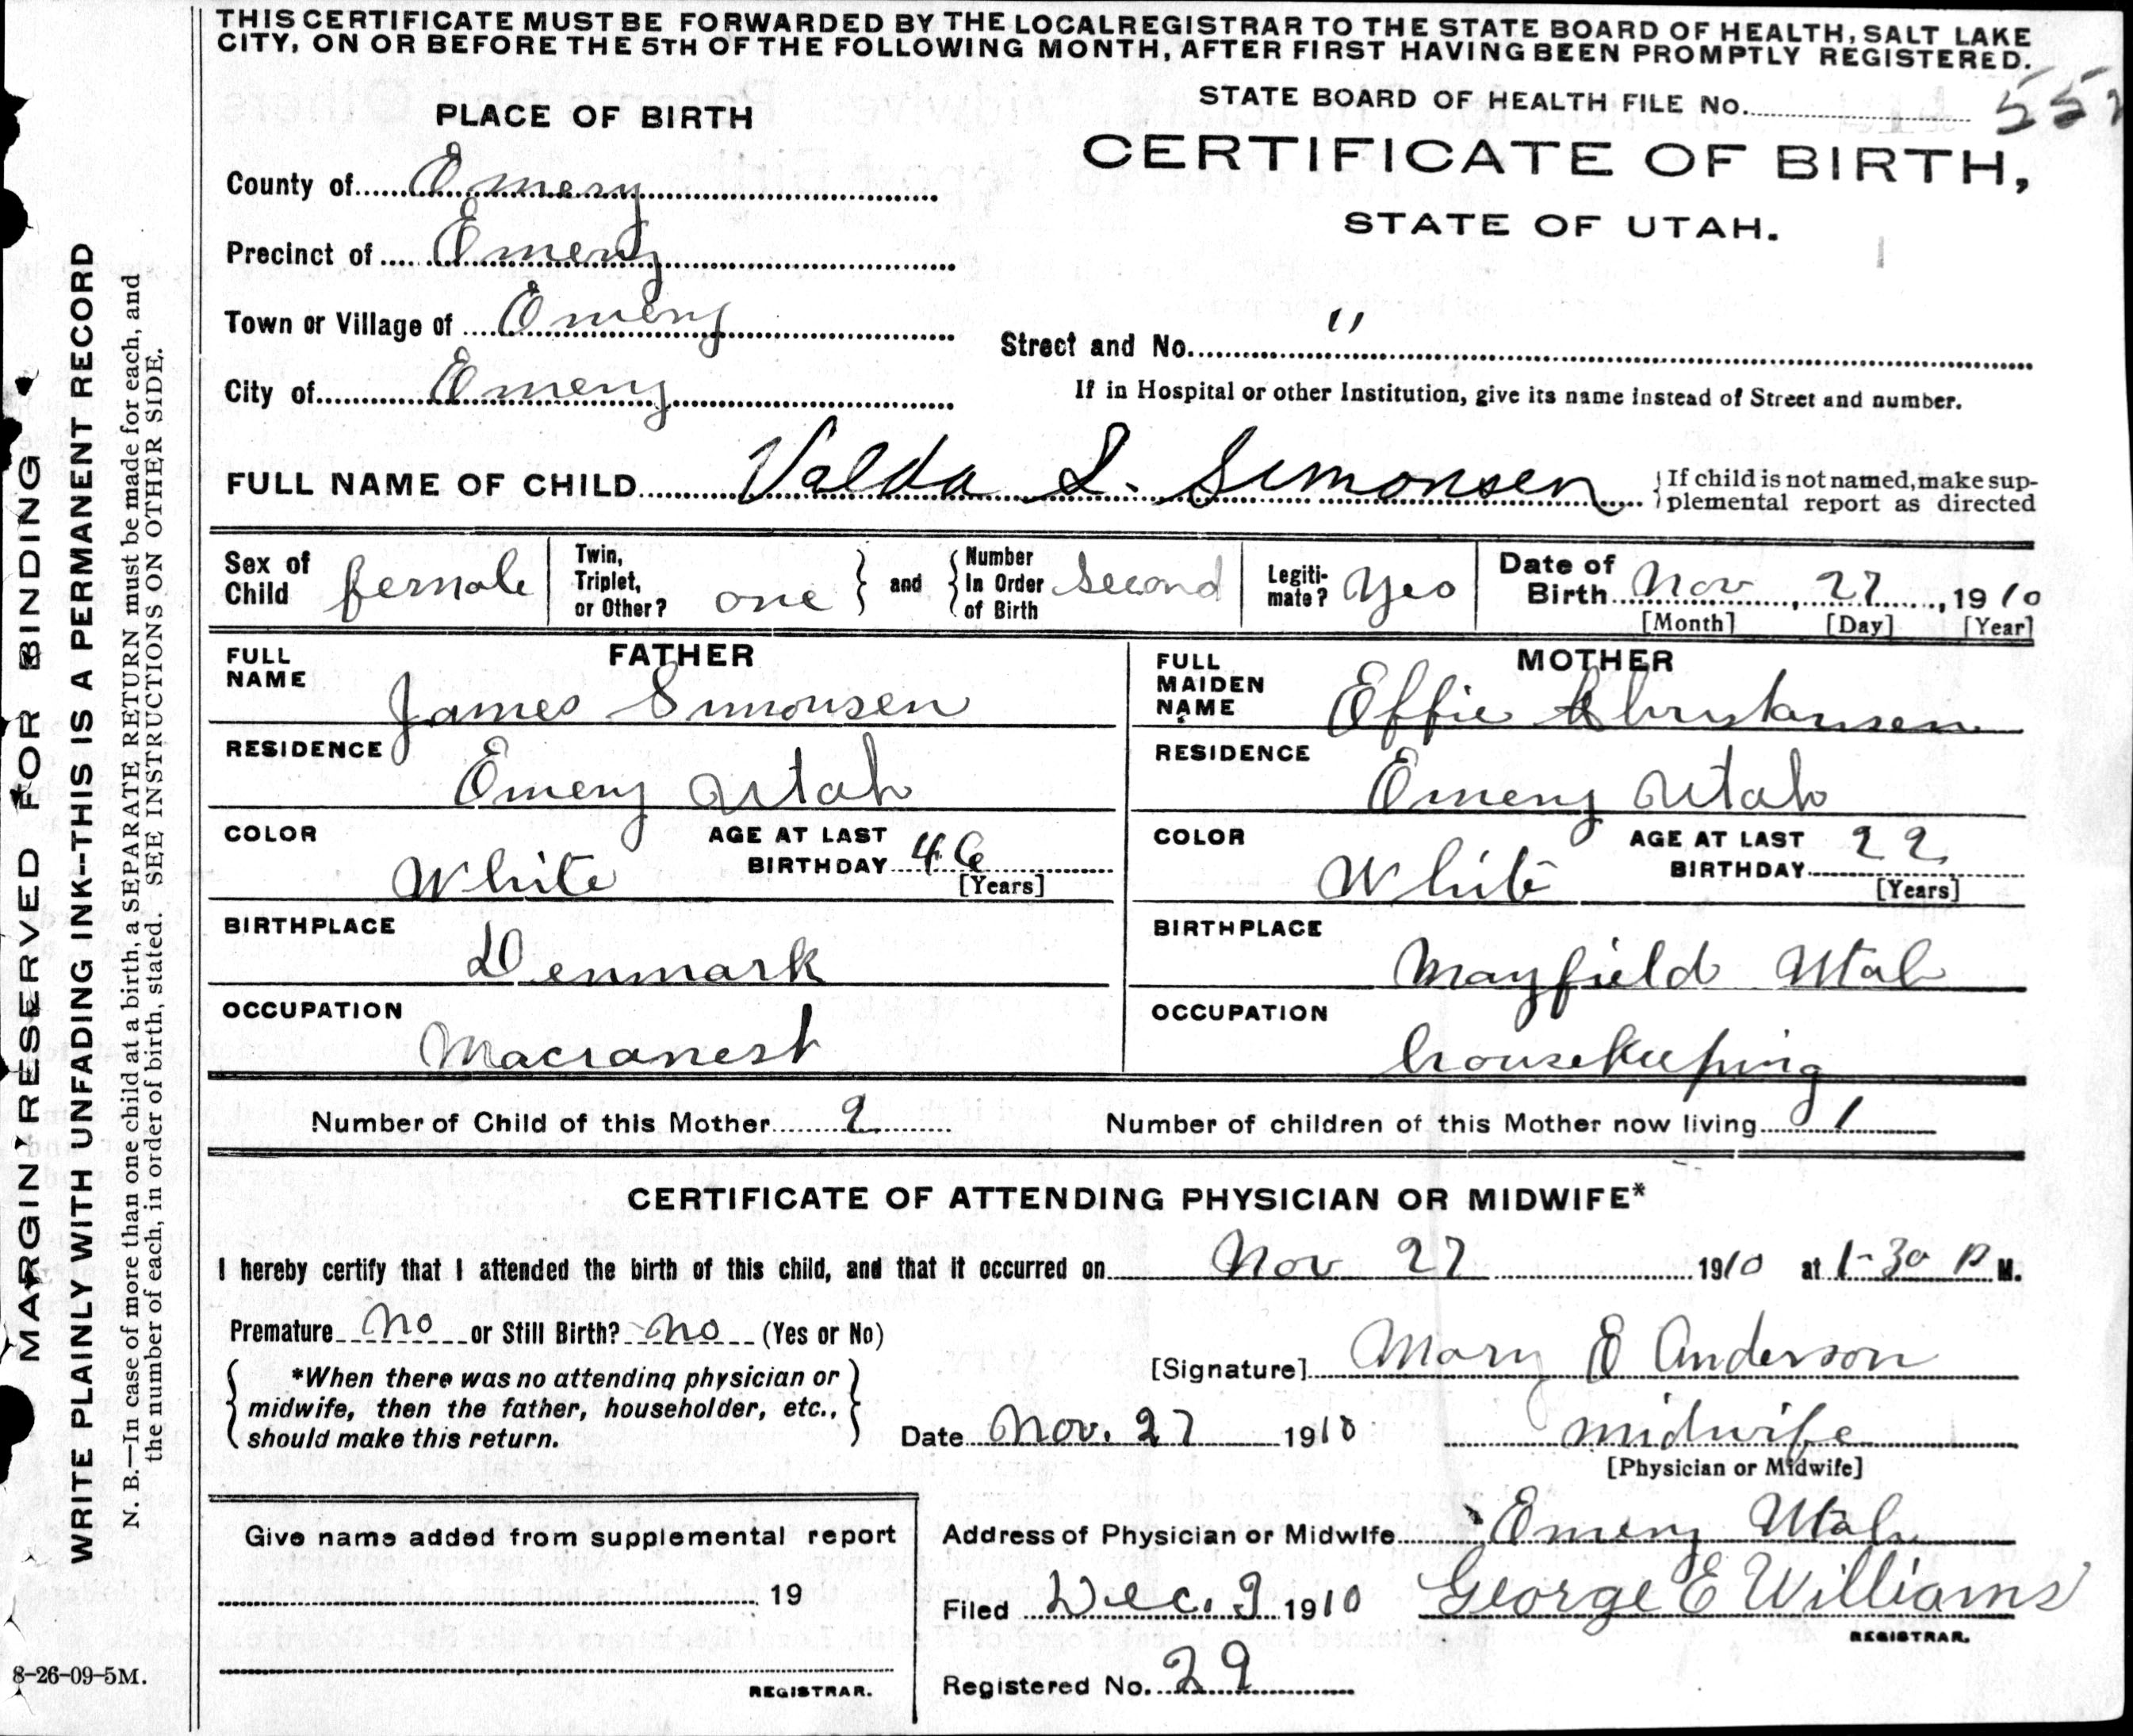 THIS CERTIFICATE MUST BE FORWARDED BY THE LOCAL REGISTRAR TO THE STATE BOARD OF HEALTH, SALT LAKE
CITY, ON OR BEFORE THE 5TH OF THE FOLLOWING MONTH, AFTER FIRST HAVING BEEN PROMPTLY REGISTERED.
STATE BOARD OF HEALTH FILE No. 552
PLACE OF BIRTH
CERTIFICATE OF BIRTH,
STATE OF UTAH.
County of Emery
Precinct of Emery
Town or Village of Emery
Street and No. "
City of Emery
If in Hospital or other Institution, give its name instead of Street and number.
FULL NAME OF CHILD Valda S. Simonsen
If child is not named, make sup-
plemental report as directed
Sex of Child female
Twin, Triplet, or Other? one
and
Number In Order of Birth second
Legiti-mate? yes
Date of Birth Nov, 27, 1910
[Month] [Day] [Year]
FATHER
FULL NAME James Simonsen
RESIDENCE Emery Utah
COLOR White
AGE AT LAST BIRTHDAY 46
[Years]
BIRTHPLACE Denmark
OCCUPATION Macranest
MOTHER
FULL MAIDEN NAME Effie Christansen
RESIDENCE Emery Utah
COLOR White
AGE AT LAST BIRTHDAY 22
[Years]
BIRTHPLACE Mayfield Utah
OCCUPATION housekeeping
Number of Child of this Mother 2 Number of children of this Mother now living 1
CERTIFICATE OF ATTENDING PHYSICIAN OR MIDWIFE*
I hereby certify that I attended the birth of this child, and that it occurred on Nov 27 1910 at 1-30 P M.
Premature no or Still Birth? no (Yes or No)
*When there was no attending physician or
midwife, then the father, householder, etc.,
should make this return.
[Signature] Mary E Anderson
Date Nov. 27 1910 midwife
[Physician or Midwife]
Give name added from supplemental report
19
REGISTRAR.
Address of Physician or Midwife Emery Utah
Filed Dec. 9 1910 George E Williams
REGISTRAR.
Registered No. 29
MARGIN RESERVED FOR BINDING
WRITE PLAINLY WITH UNFADING INK--THIS IS A PERMANENT RECORD
N. B.—In case of more than one child at a birth, a SEPARATE RETURN must be made for each, and
the number of each, in order of birth, stated. SEE INSTRUCTIONS ON OTHER SIDE.
8-26-09-5M.